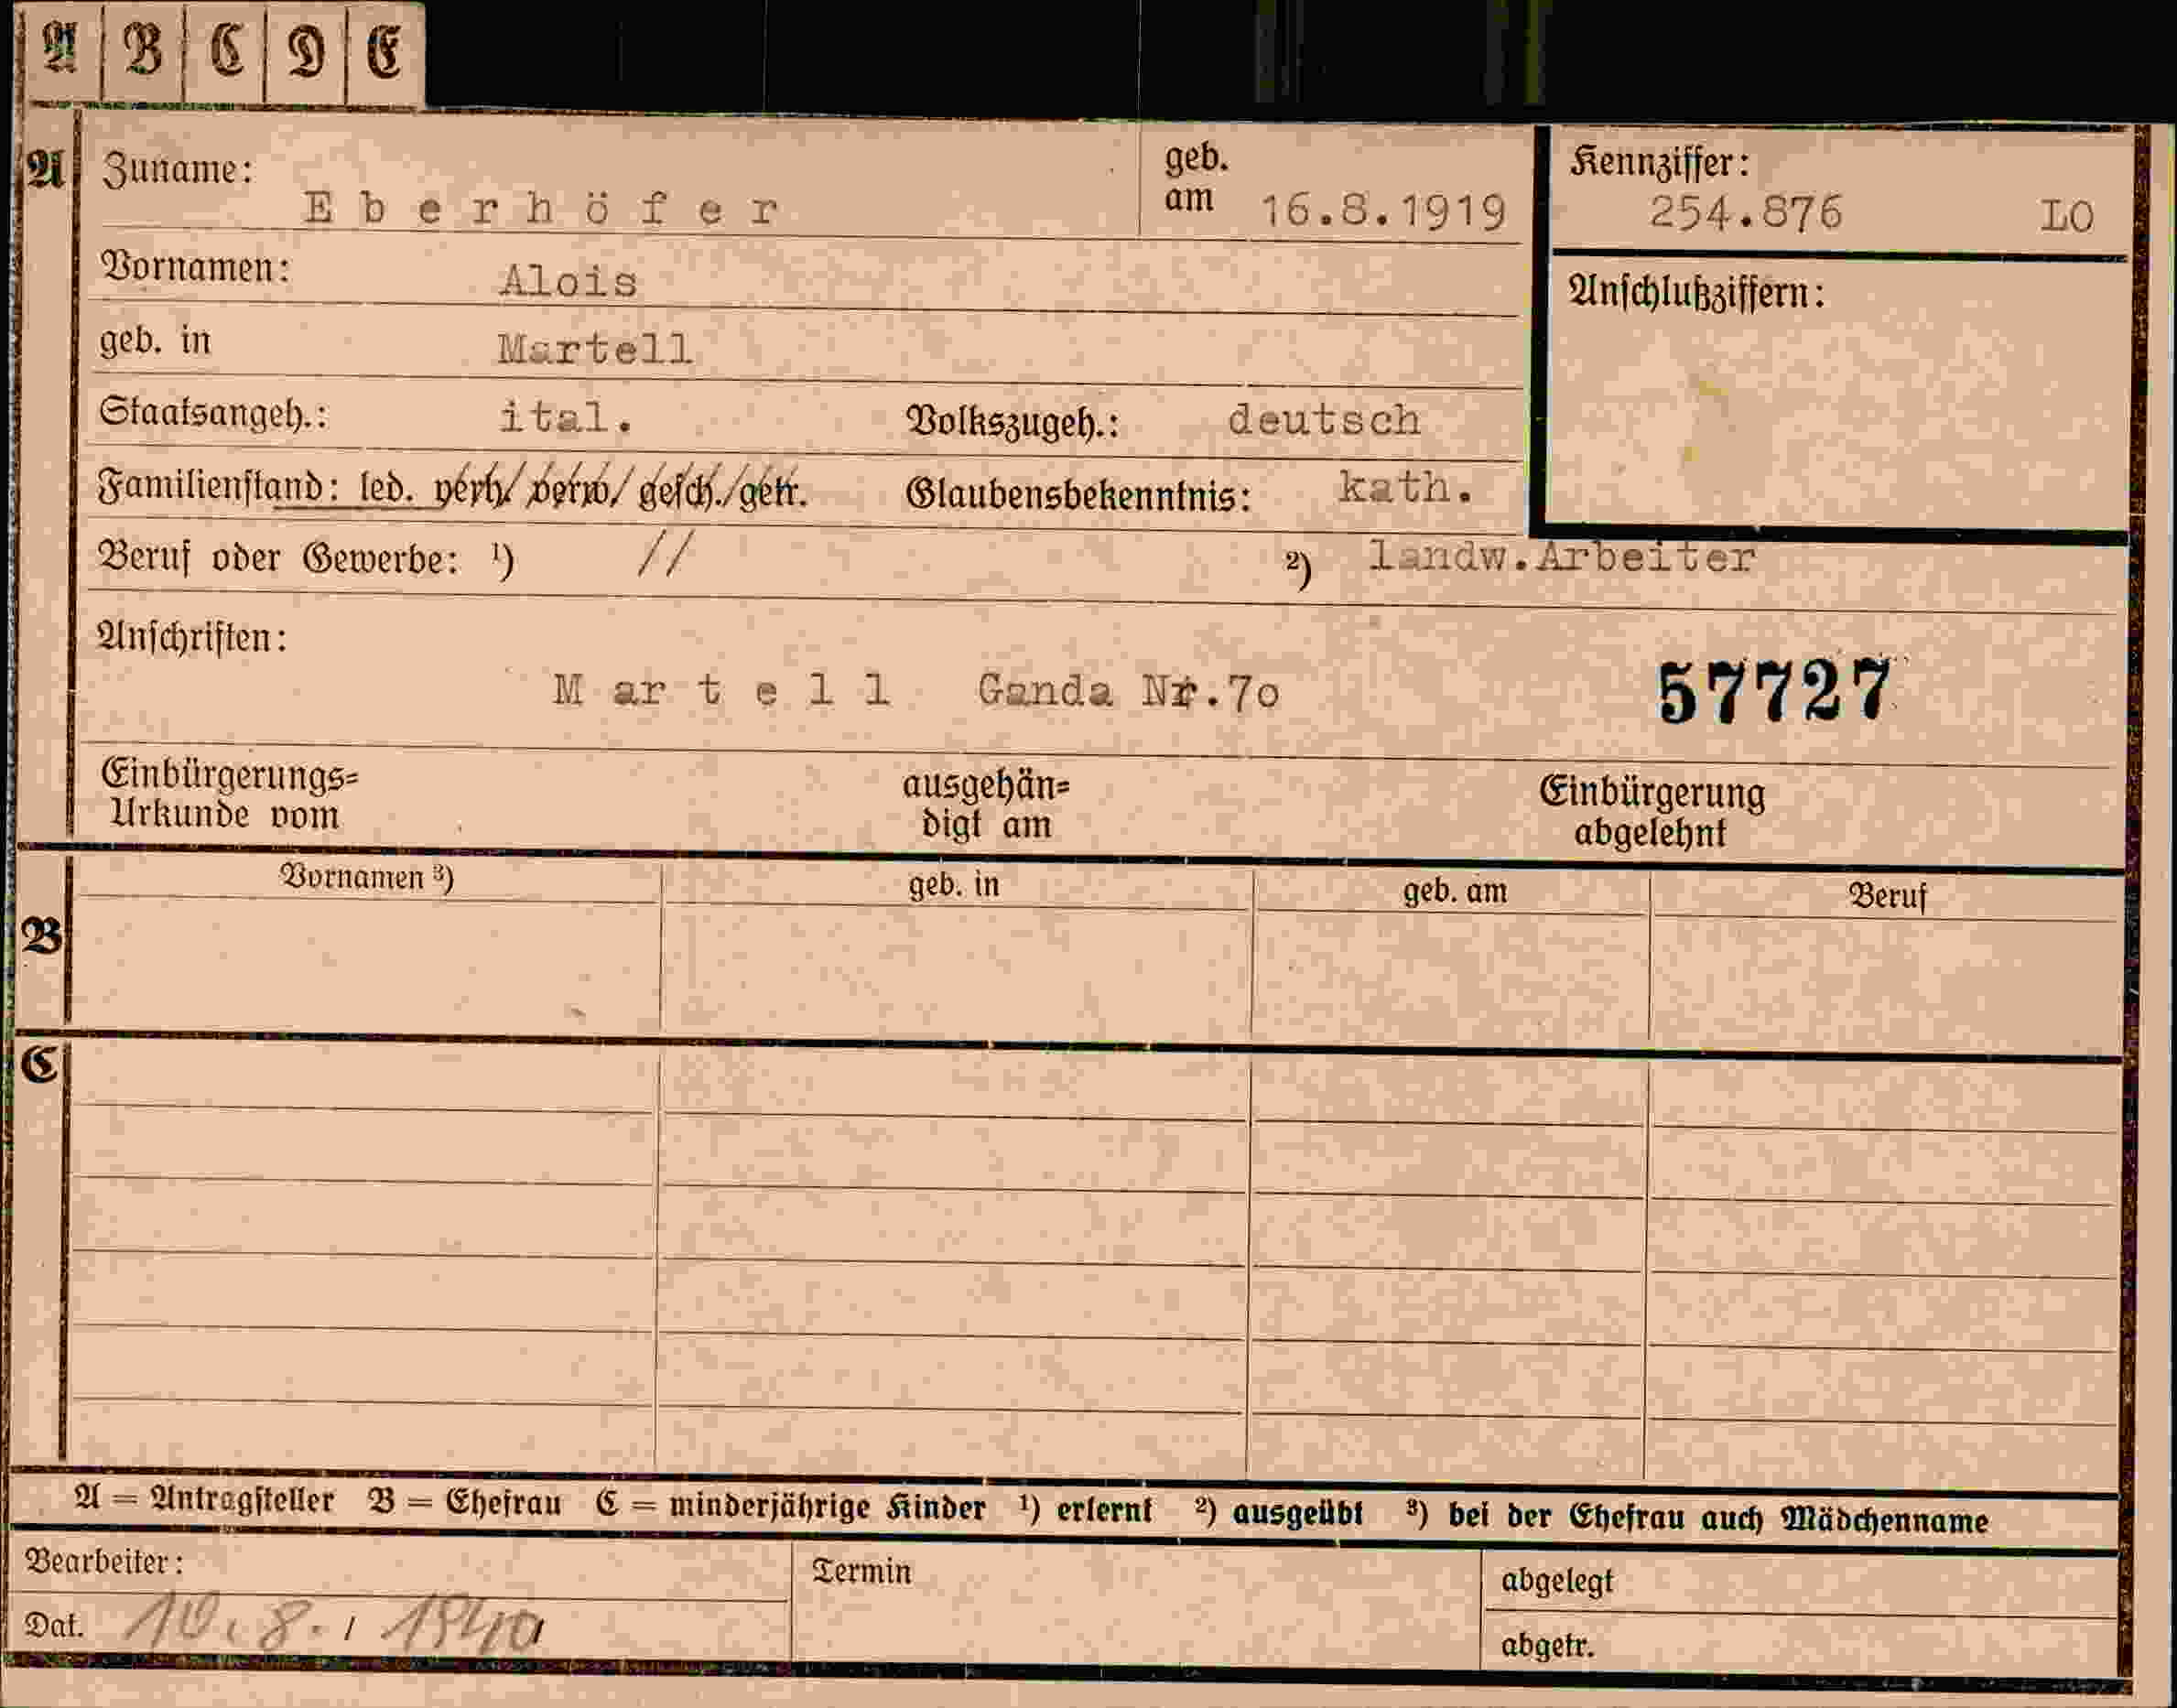 A B C D E
A Zuname: Eberhöfer geb. am 16.8.1919 Kennziffer: 254.876 LO
Vornamen: Alois Anschlußziffern:
geb. in Martell
Staatsangeh.: ital. Volkszugeh.: deutsch
Familienstand: led. verh/ verw/ gesch./getr. Glaubensbekenntnis: kath.
Beruf oder Gewerbe: ¹) // ²) landw.Arbeiter
Anschriften:
Martell Ganda Nr.7o 57727
Einbürgerungs= ausgehän= Einbürgerung
Urkunde vom digt am abgelehnt
Vornamen ³) geb. in geb. am Beruf
B
C
A = Antragsteller B = Ehefrau C = minderjährige Kinder ¹) erlernt ²) ausgeübt ³) bei der Ehefrau auch Mädchenname
Bearbeiter: Termin abgelegt
Dat. 10.8./1940 abgetr.